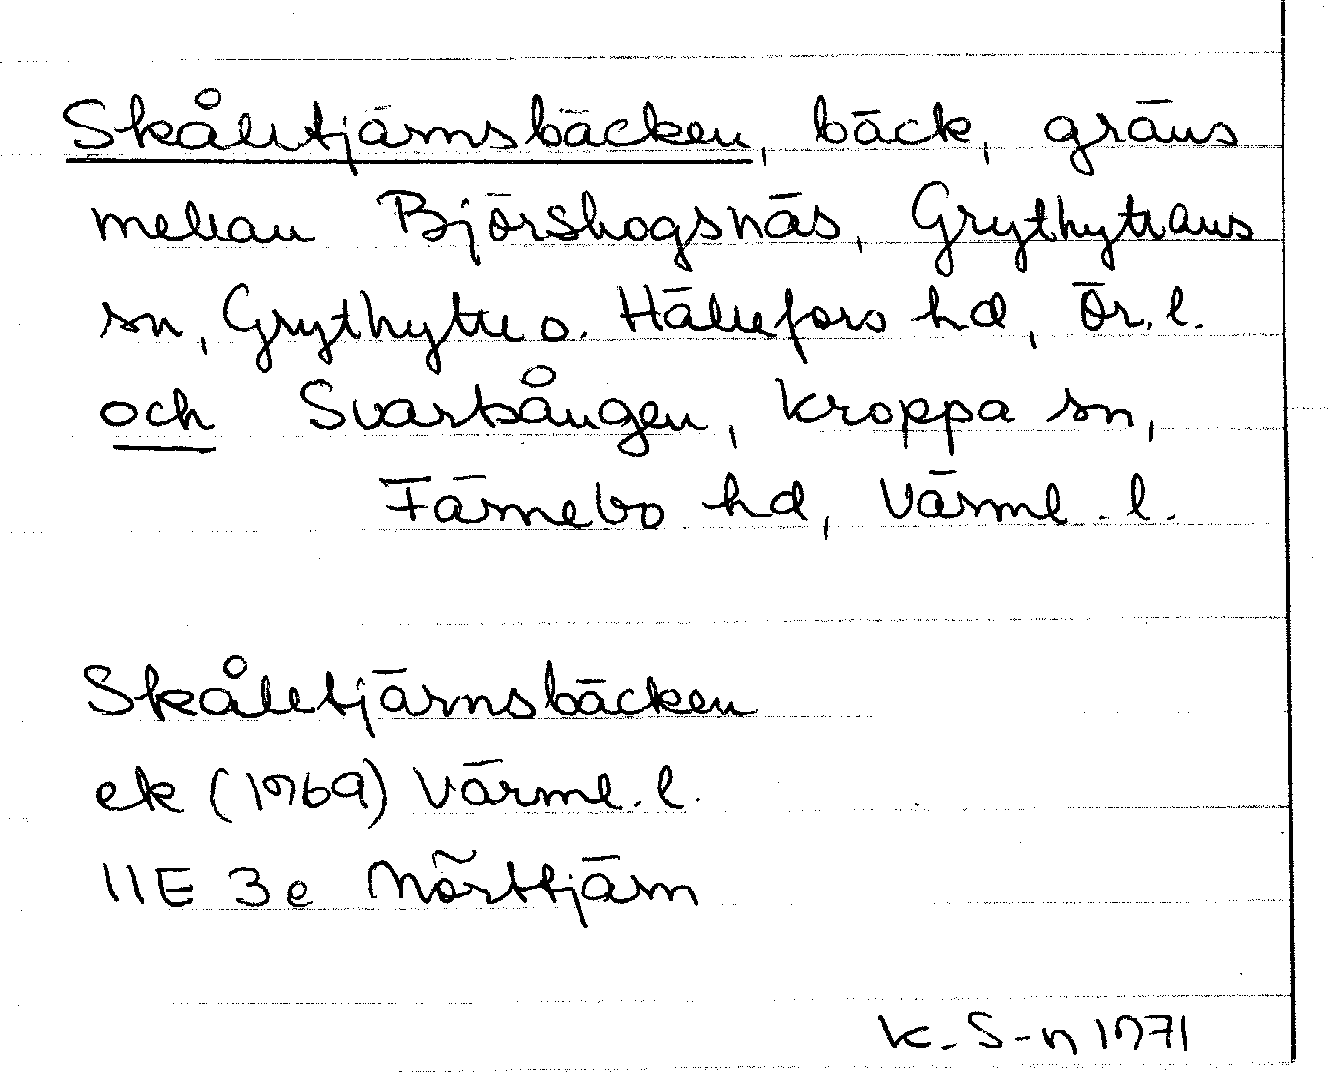 Skåletjärnsbäcken, bäck, gräns
mellan Björskogsnäs, Grythyttans
sn, Grythytte o. Hällefors hd, Ör. l.
och Svartsången, Kroppa sn,
Färnebo hd, Värml. l.
Skåletjärnsbäcken
ek (1969) Värml. l.
11E 3e Mörttjärn
K. S-n 1971